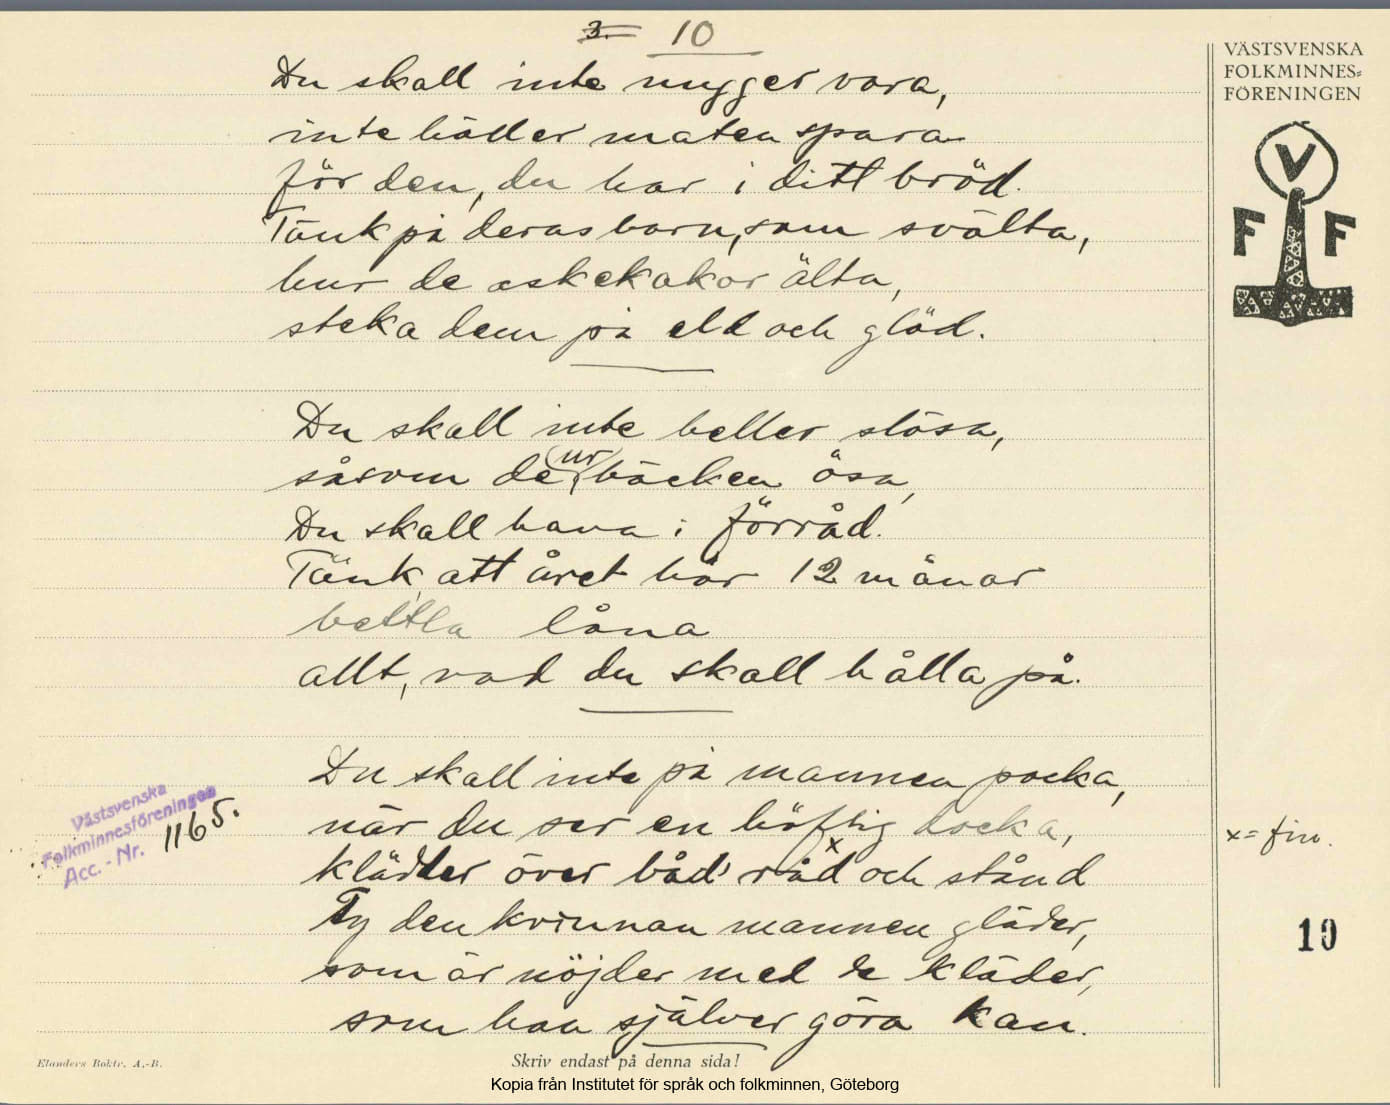 3. 10
VÄSTSVENSKA
FOLKMINNES-
FÖRENINGEN
V
F F
Du skall inte nugger vara,
inte häller maten spara
för den, du har i ditt bröd.
Tänk på deras barn, som svälta,
hur de askekakor älta,
steka dem på eld och glöd.
Du skall inte heller slösa,
såsom de ur bäcken ösa,
Du skall hava i förråd.
Tänk, att året här 12 månar
bettla låna
allt, vad du skall hålla på.
Du skall inte på mannen pocka,
när du ser en höftig docka,
x = fin.
klädder över båd' råd och stånd
Ty den kvinnan mannen gläder,
som är nöjder med de kläder,
som han själver göra kan.
Västsvenska
Folkminnesföreningen
Acc. - Nr. 1165.
10
Elanders Boktr. A.-B.
Skriv endast på denna sida!
Kopia från Institutet för språk och folkminnen, Göteborg